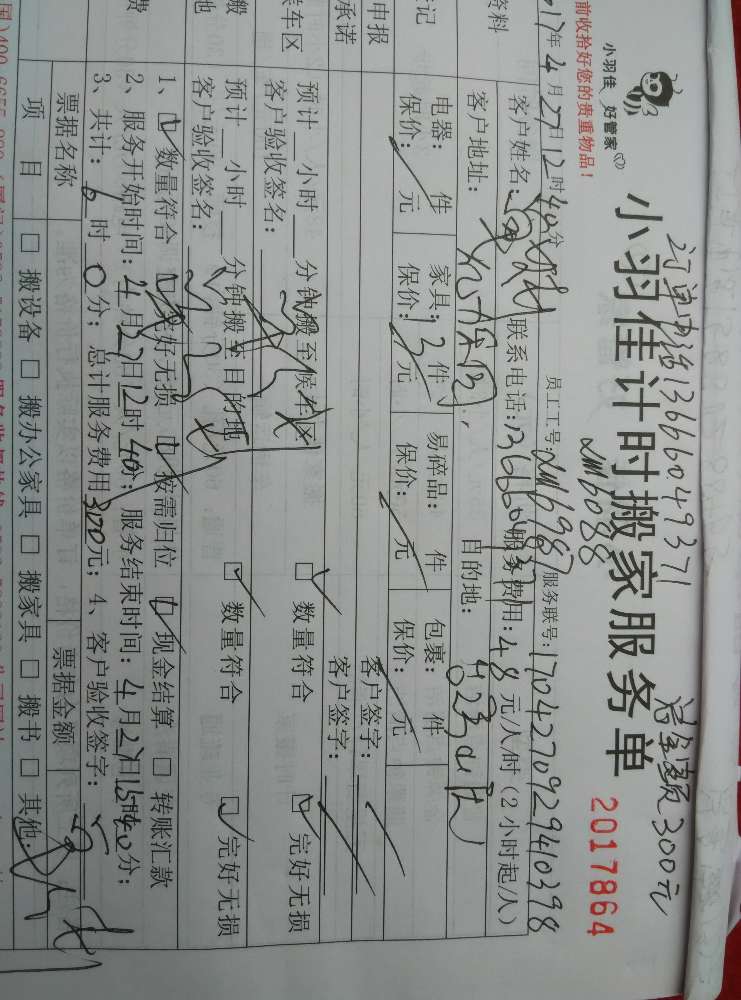 订单电话13666049371 总金额300元
小羽佳计时搬家服务单
LM6088
2017864
小羽佳 好管家
前收拾好您的贵重物品！
17年4月27日12时40分 员工工号:LM6987 服务联号:170427092940398
资料
客户姓名: 联系电话:13666049371 服务费用:48元/人/时(2小时起/人)
客户地址: 目的地:
登记
电器: 件 家具:13件 易碎品: 件 包裹: 件
保价: 元 保价: 元 保价: 元 保价: 元
申报
客户签字:
承诺
客户签字:
装车区
预计 小时 分钟搬至候车区 □ 数量符合 □ 完好无损
客户验收签名:
搬
地
预计 小时 分钟搬至目的地 □ 数量符合 □ 完好无损
客户验收签名:
费
1、□ 数量符合 □ 完好无损 □ 按需归位 □ 现金结算 □ 转账汇款
2、服务开始时间: 4月27日12时40分; 服务结束时间: 4月27日15时40分;
3、共计: 6时0分; 总计服务费用300元; 4、客户验收签字:
票据名称 票据金额
项 目 □ 搬设备 □ 搬办公家具 □ 搬家具 □ 搬书 □ 其他: